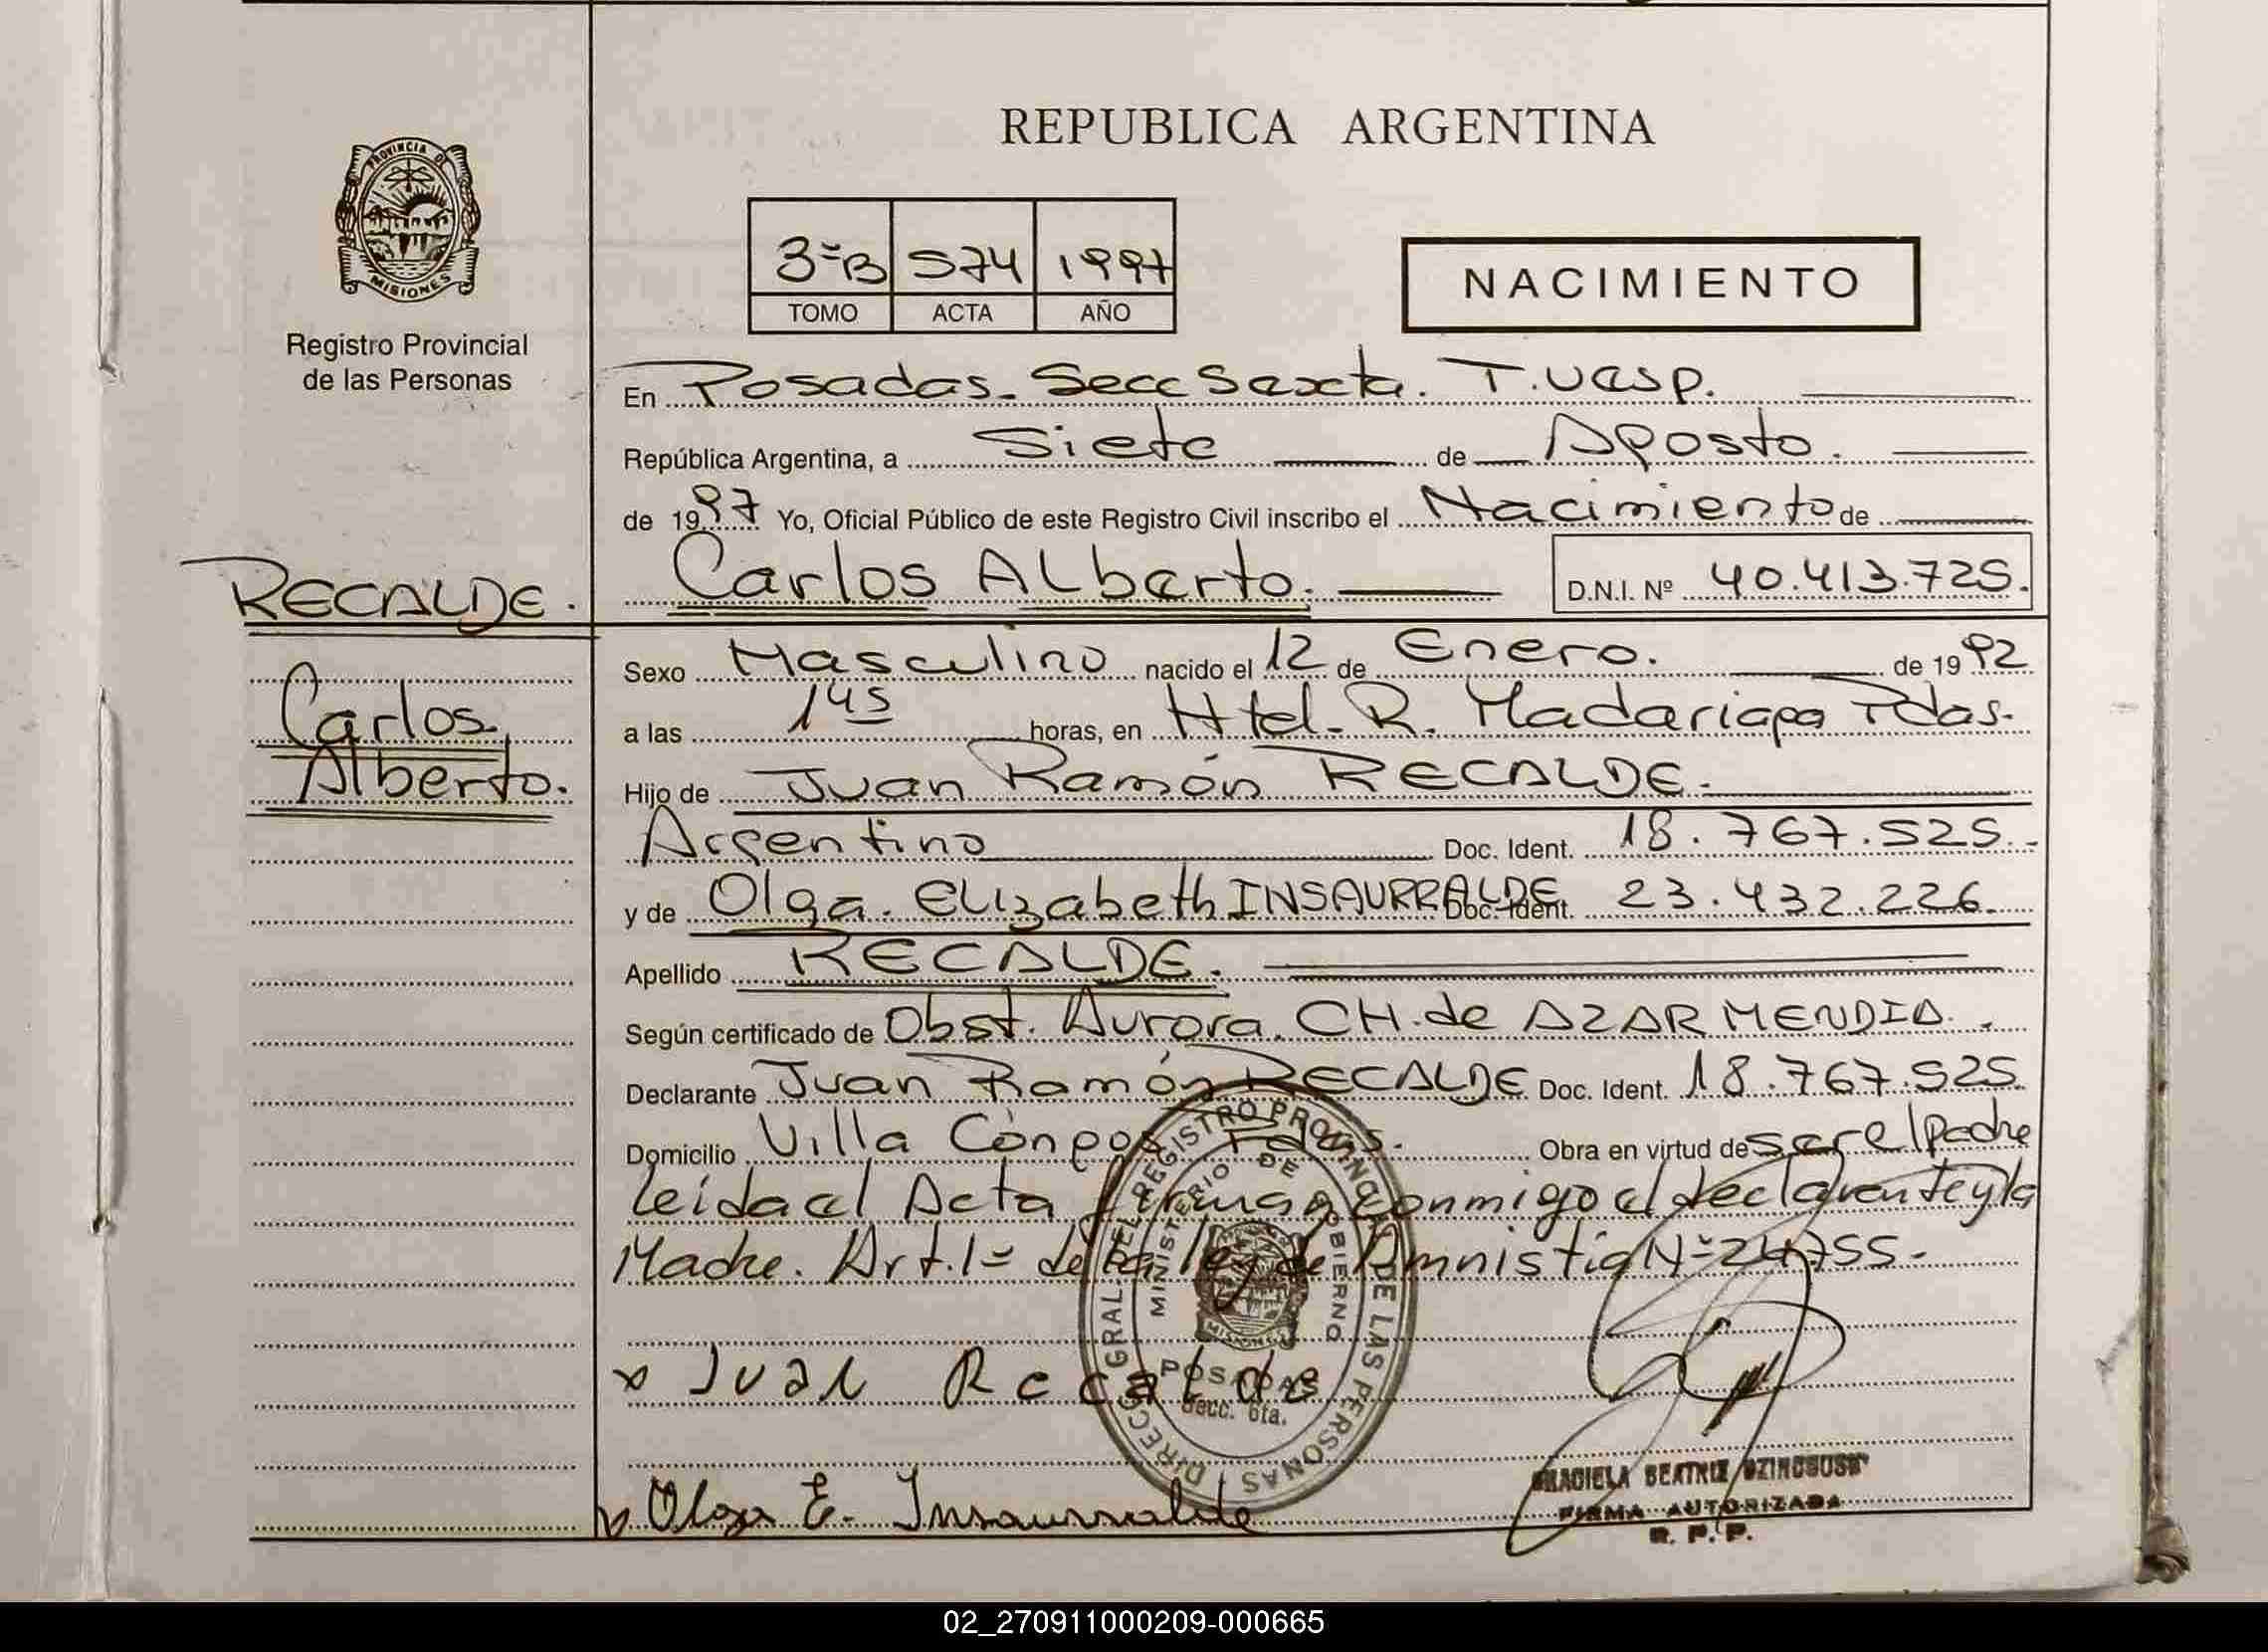 REPUBLICA ARGENTINA
PROVINCIA DE
MISIONES
Registro Provincial
de las Personas
3ºB 574 1997
TOMO ACTA AÑO
NACIMIENTO
En Posadas. Secc Sexta. T.
República Argentina, a Siete de Agosto.
de 1997 Yo, Oficial Público de este Registro Civil inscribo el Nacimiento de
Carlos Alberto. D.N.I. Nº 40.413.725.
RECALDE.
Carlos
Alberto.
Sexo Masculino nacido el 12 de Enero. de 1992
a las 145 horas, en Htel. R. Madariaga Pdas.
Hijo de Juan Ramón RECALDE.
Argentino Doc. Ident. 18.767.525.
y de Olga. Elizabeth INSAURRALDE Doc. Ident. 23.432.226.
Apellido RECALDE.
Según certificado de Obst. Aurora. CH. de AZARMENDIA.
Declarante Juan Ramón RECALDE Doc. Ident. 18.767.525.
Domicilio Villa Pdas. Obra en virtud de ser el Padre
leida el Acta firman conmigo el declarante y la
Madre. Art. 1º de la ley de Amnistia Nº 24755.
DIRECC. GRAL. DEL REGISTRO PROVINCIAL DE LAS PERSONAS
MINISTERIO DE GOBIERNO
MISIONES
POSADAS
Secc. 6ta.
x Juan Recalde
x Olga E. Insaurralde
GRACIELA BEATRIZ
FIRMA AUTORIZADA
R. P. P.
02_270911000209-000665